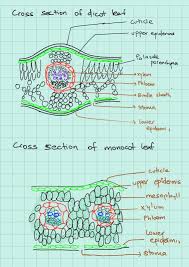 Cross section of dicot leaf
cuticle
upper epidermis
Palisade
parenchyma
xylem
Phloem
Bundle sheath
Stoma
Lower
epidermis
Cross section of monocot leaf
cuticle
upper epidermis
mesophyll
xylum
Phloem
Lower
epidermis
Stoma